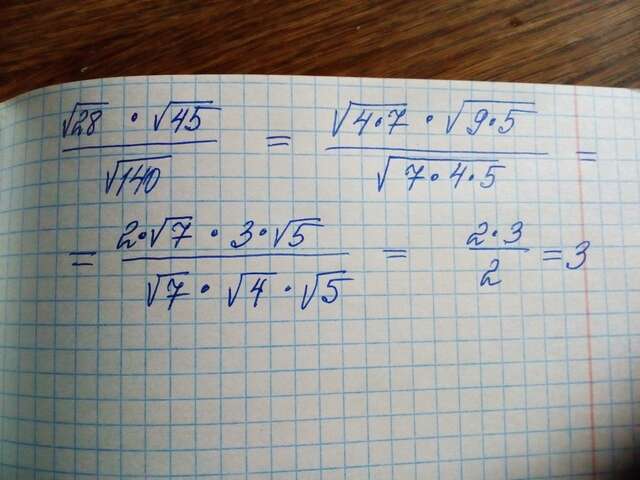 √28 · √45 / √140 = √4·7 · √9·5 / √7·4·5 =
= 2·√7 · 3·√5 / √7 · √4 · √5 = 2·3 / 2 = 3